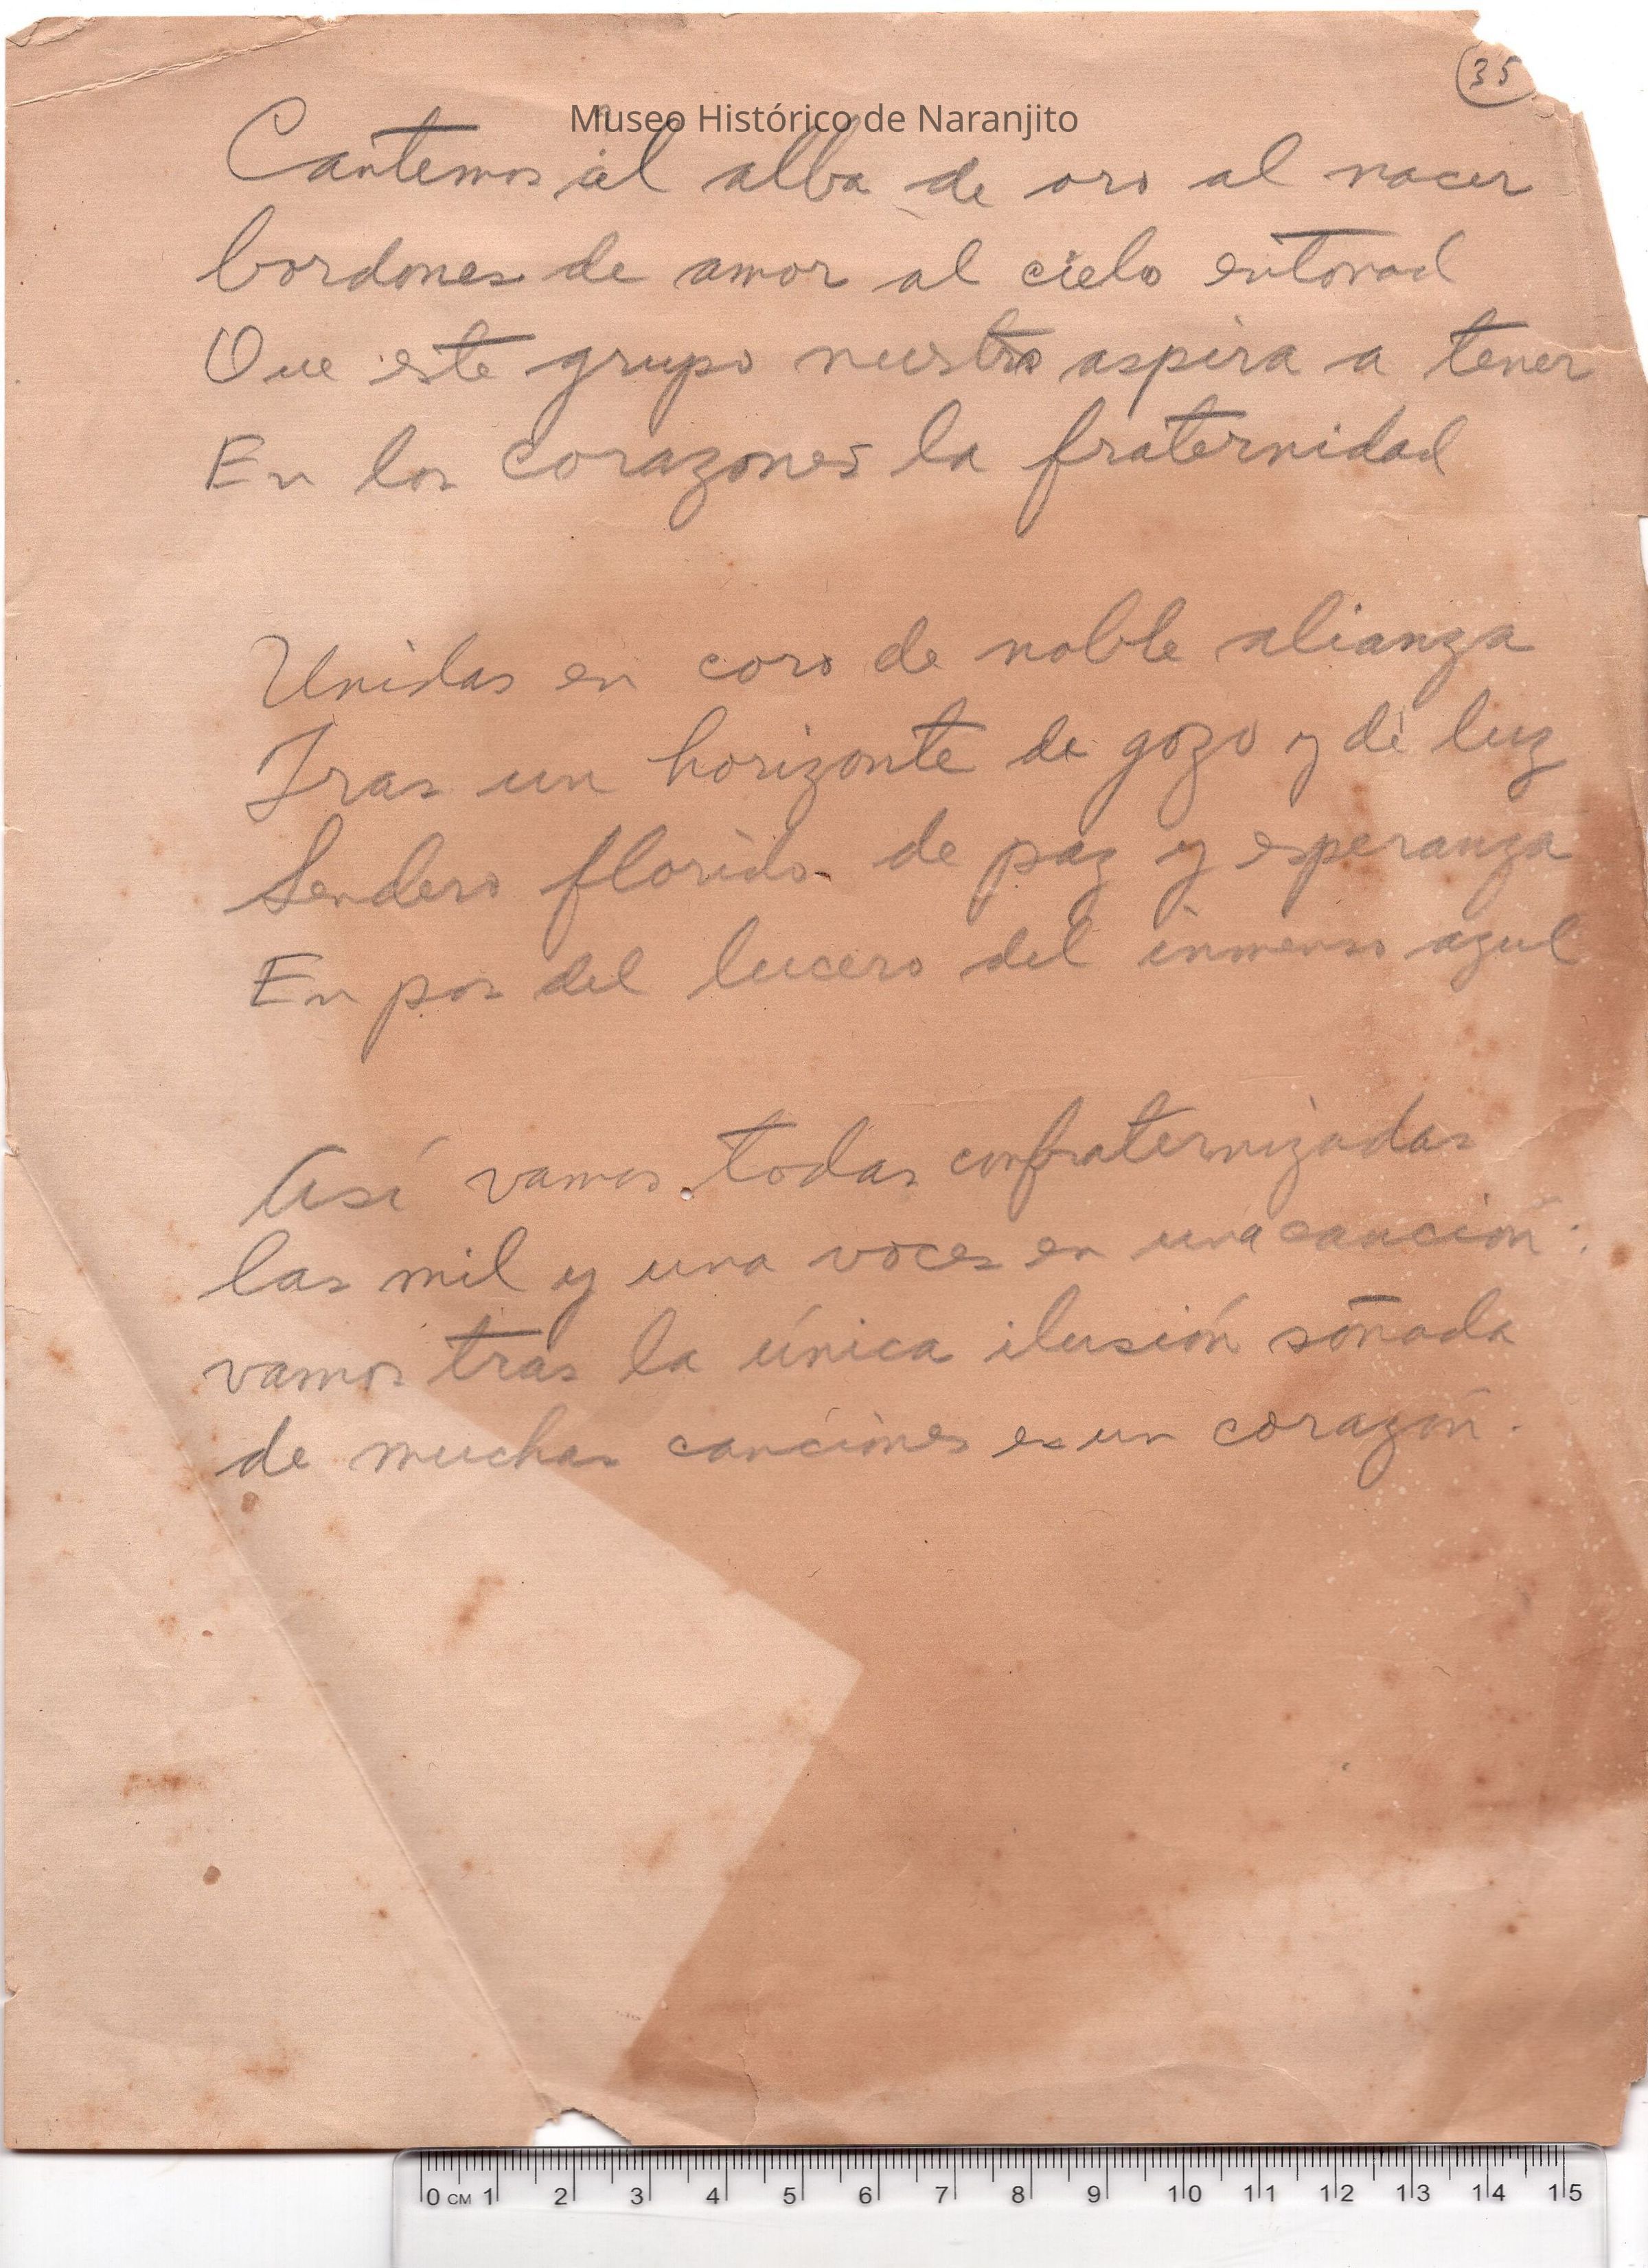 35
Museo Histórico de Naranjito
Cantemos al alba de oro al nacer
bordones de amor al cielo entonad
Que este grupo nuestro aspira a tener
En los corazones la fraternidad
Unidas en coro de noble alianza
Tras un horizonte de gozo y de luz
Sendero florido de paz y esperanza
En pos del lucero del inmenso azul
Así vamos todas confraternizadas
las mil y una voces en una canción:
vamos tras la única ilusión soñada
de muchas canciones es un corazón.
0 CM 1 2 3 4 5 6 7 8 9 10 11 12 13 14 15